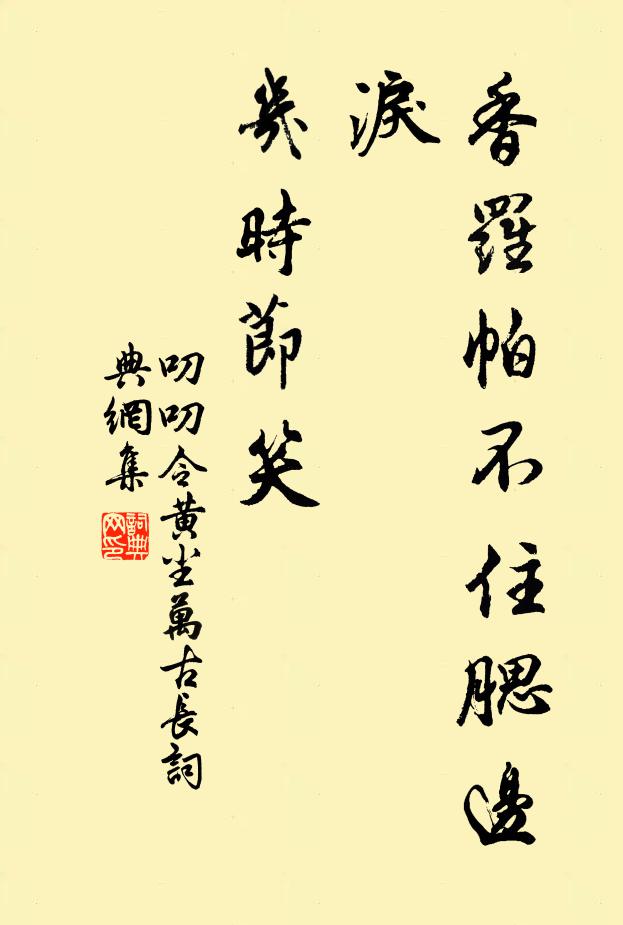 香羅帕不住腮邊
淚
幾時節笑
叨叨令黃尘萬古長詞
典網集
詞典網印